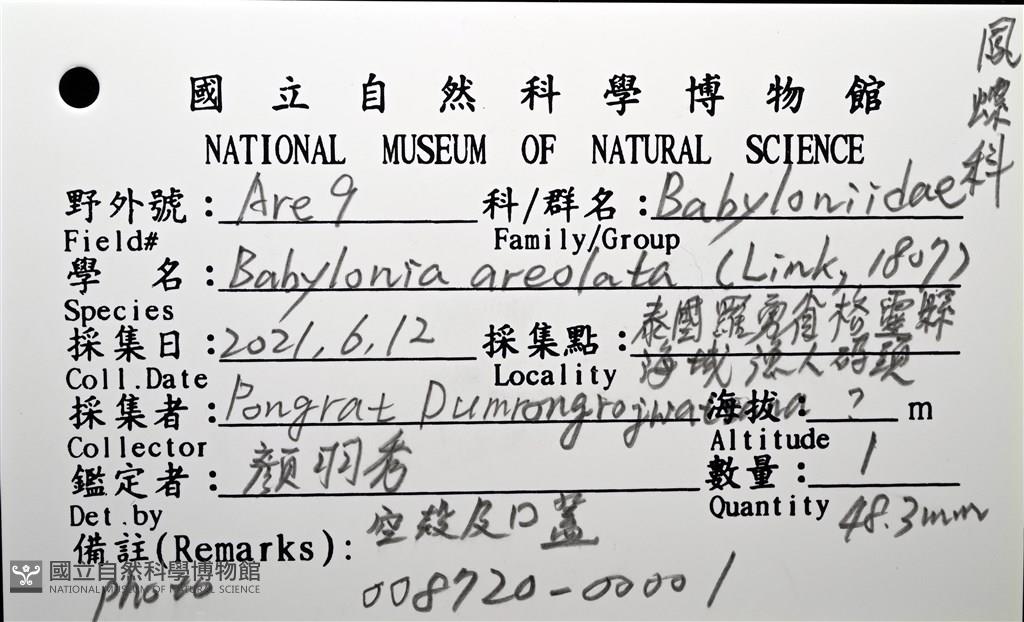 鳳螺科
國立自然科學博物館
NATIONAL MUSEUM OF NATURAL SCIENCE
野外號：Are 9 科/群名：Babyloniidae
Field# Family/Group
學 名：Babylonia areolata (Link, 1807)
Species
採集日：2021, 6, 12 採集點：泰國羅勇省格靈縣
海域漁人碼頭
Coll.Date Locality
採集者：Pongrat Dumrongrojwattana 海拔：? m
Collector Altitude
鑑定者：顏羽秀 數量：1
Det.by Quantity 48.3mm
備註(Remarks)：空殼及口蓋
國立自然科學博物館
NATIONAL MUSEUM OF NATURAL SCIENCE
photo 008720-00001